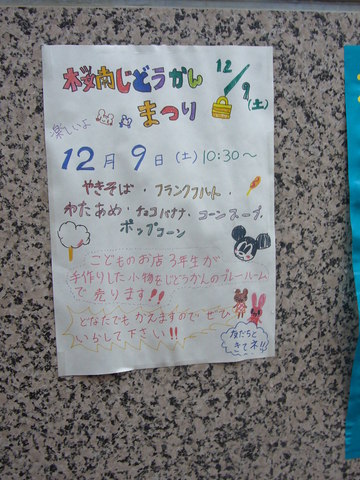 桜南じどうかん
まつり
12/9(土)
楽しいよ
12月9日(土)10:30〜
やきそば・フランクフルト・
わたあめ・チョコバナナ・コーンスープ・
ポップコーン
こどものお店 3年生が
手作りした小物をじどうかんのプレールーム
で売ります!!
どなたでもかえますので ぜひ
いらして下さい!!
友だちと
きてネ!!